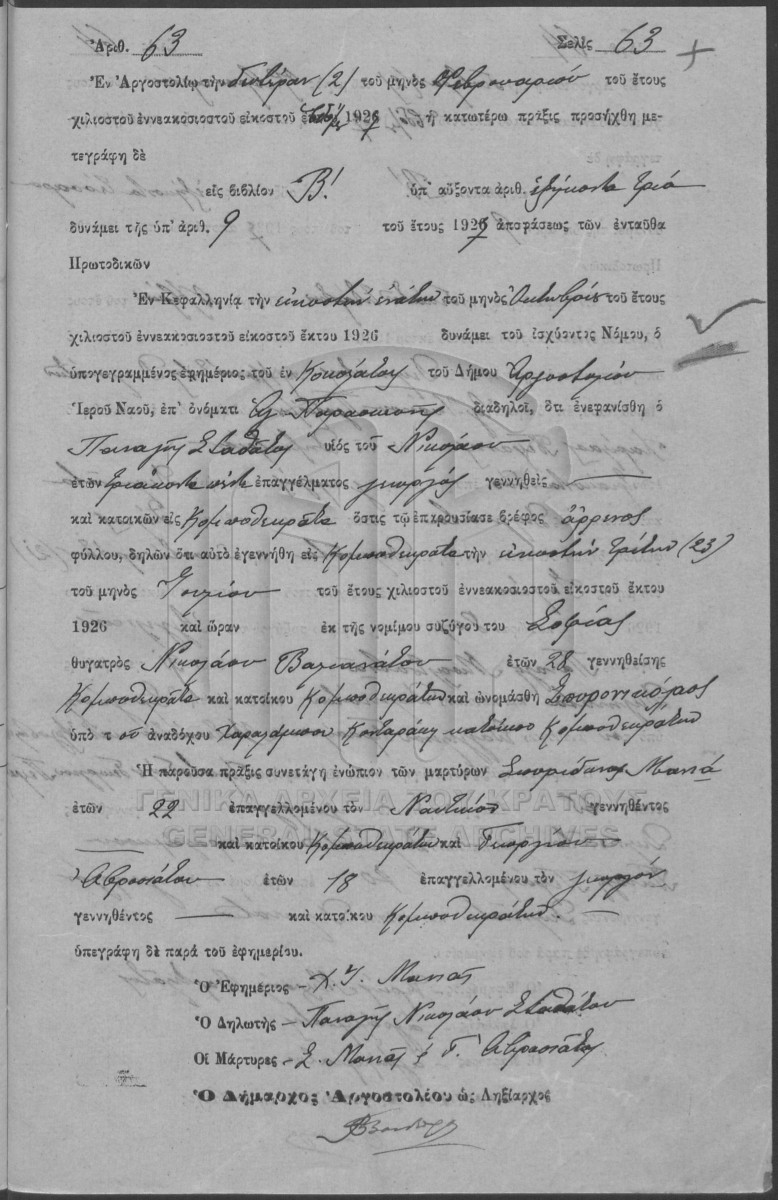 Ἀριθ. 63 Σελὶς 63
Ἐν Ἀργοστολίῳ τὴν δευτέραν (2) τοῦ μηνὸς Φεβρουαρίου τοῦ ἔτους
χιλιοστοῦ ἐννεακοσιοστοῦ εἰκοστοῦ 1927 ἡ κατωτέρω πρᾶξις προσήχθη με-
τεγράφη δὲ
εἰς βιβλίον Β! ὑπ' αὔξοντα ἀριθ. ἑξήκοντα τρία
δυνάμει τῆς ὑπ' ἀριθ. 9 τοῦ ἔτους 1927 ἀποφάσεως τῶν ἐνταῦθα
Πρωτοδικῶν
Ἐν Κεφαλληνίᾳ τὴν εἰκοστὴν ἐνάτην τοῦ μηνὸς Ὀκτωβρίου τοῦ ἔτους
χιλιοστοῦ ἐννεακοσιοστοῦ εἰκοστοῦ ἕκτου 1926 δυνάμει τοῦ ἰσχύοντος Νόμου, ὁ
ὑπογεγραμμένος ἐφημέριος τοῦ ἐν Κοκολάτου τοῦ Δήμου Ἀργοστολίου
Ἱεροῦ Ναοῦ, ἐπ' ὀνόματι Ἁγ Παρασκευῆς διαδηλοῖ, ὅτι ἐνεφανίσθη ὁ
Παναγῆς Σταθάτος υἱὸς τοῦ Νικολάου
ἐτῶν τριάκοντα πέντε ἐπαγγέλματος γεωργός γεννηθεὶς —
καὶ κατοικῶν εἰς Κομποθεκράτα ὅστις τῷ ἐπαρουσίασε βρέφος ἄρρενος
φύλλου, δηλῶν ὅτι αὐτὸ ἐγεννήθη εἰς Κομποθεκράτα τὴν εἰκοστὴν τρίτην (23)
τοῦ μηνὸς Ἰουλίου τοῦ ἔτους χιλιοστοῦ ἐννεακοσιοστοῦ εἰκοστοῦ ἕκτου
1926 καὶ ὥραν ἐκ τῆς νομίμου συζύγου του Σοφίας
θυγατρὸς Νικολάου Βαλιανάτου ἐτῶν 28 γεννηθείσης
Κομποθεκράτα καὶ κατοίκου Κομποθεκράτων καὶ ὠνομάσθη Σπυρονικόλαος
ὑπὸ τοῦ ἀναδόχου Χαραλάμπου Κονταράκη κατοίκου Κομποθεκράτων
Ἡ παροῦσα πρᾶξις συνετάγη ἐνώπιον τῶν μαρτύρων Σπυρίδωνος Μαπᾶ
ἐτῶν 22 ἐπαγγελλομένου τὸν Ναυτικόν γεννηθέντος
— καὶ κατοίκου Κομποθεκράτων καὶ Γεωργίου
Ἀβροσάτου ἐτῶν 18 ἐπαγγελλομένου τὸν γεωργόν
γεννηθέντος — καὶ κατοίκου Κομποθεκράτων. —
ὑπεγράφη δὲ παρὰ τοῦ ἐφημερίου.
Ὁ Ἐφημέριος – Χ. Ι. Μαπᾶς
Ὁ Δηλωτὴς – Παναγῆς Νικολάου Σταθάτου
Οἱ Μάρτυρες – Σ. Μαπᾶς Γ. Ἀβροσάτος
Ὁ Δήμαρχος Ἀργοστολίου ὡς Ληξίαρχος
ΓΕΝΙΚΑ ΑΡΧΕΙΑ ΤΟΥ ΚΡΑΤΟΥΣ
GENERAL STATE ARCHIVES